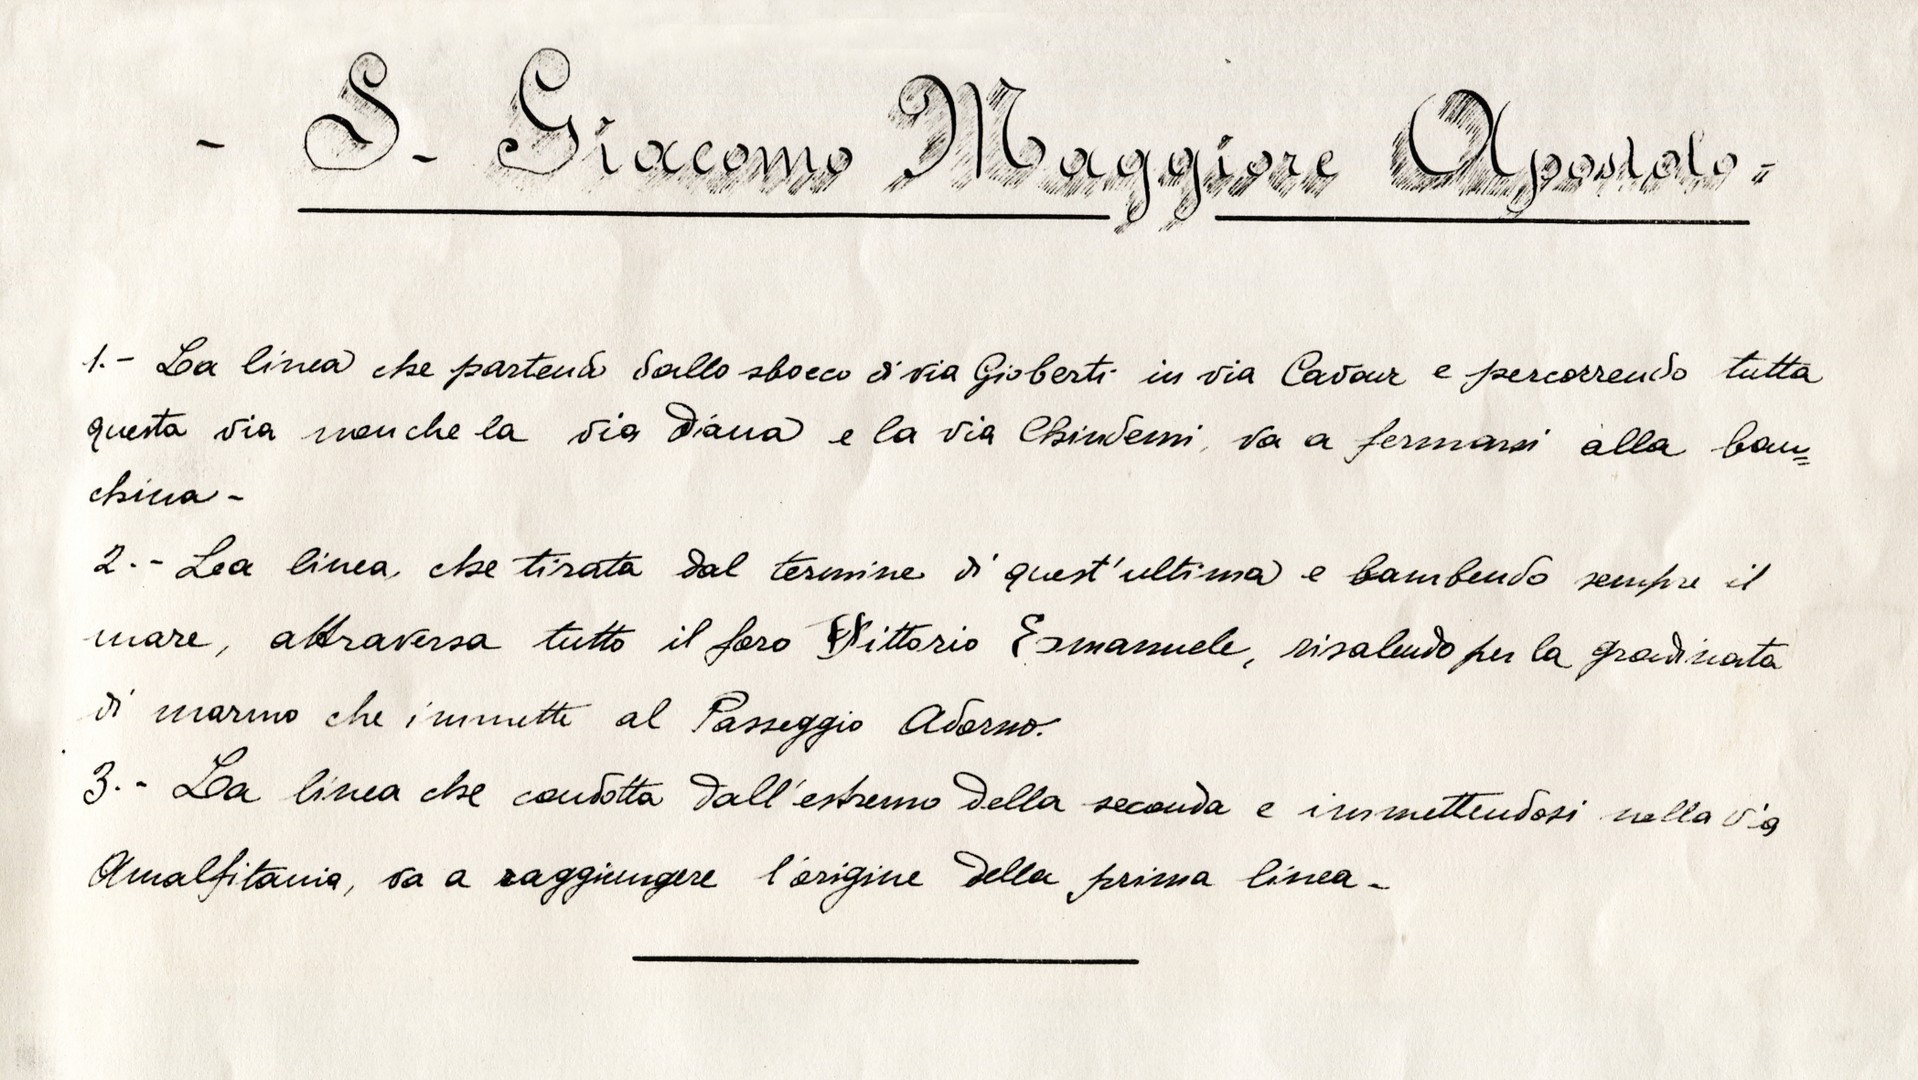 - S. Giacomo Maggiore Apostolo =
1.- La linea che partendo dallo sbocco di via Gioberti in via Cavour e percorrendo tutta
questa via nonche la via Diana e la via Chindemi, va a fermarsi alla ban=
china -
2.- La linea che tirata dal termine di quest'ultima e lambendo sempre il
mare, attraversa tutto il foro Vittorio Emanuele, risalendo per la gradinata
di marmo che immette al Passeggio Adorno.
3.- La linea che condotta dall'estremo della seconda e immettendosi nella via
Amalfitania, va a raggiungere l'origine della prima linea -